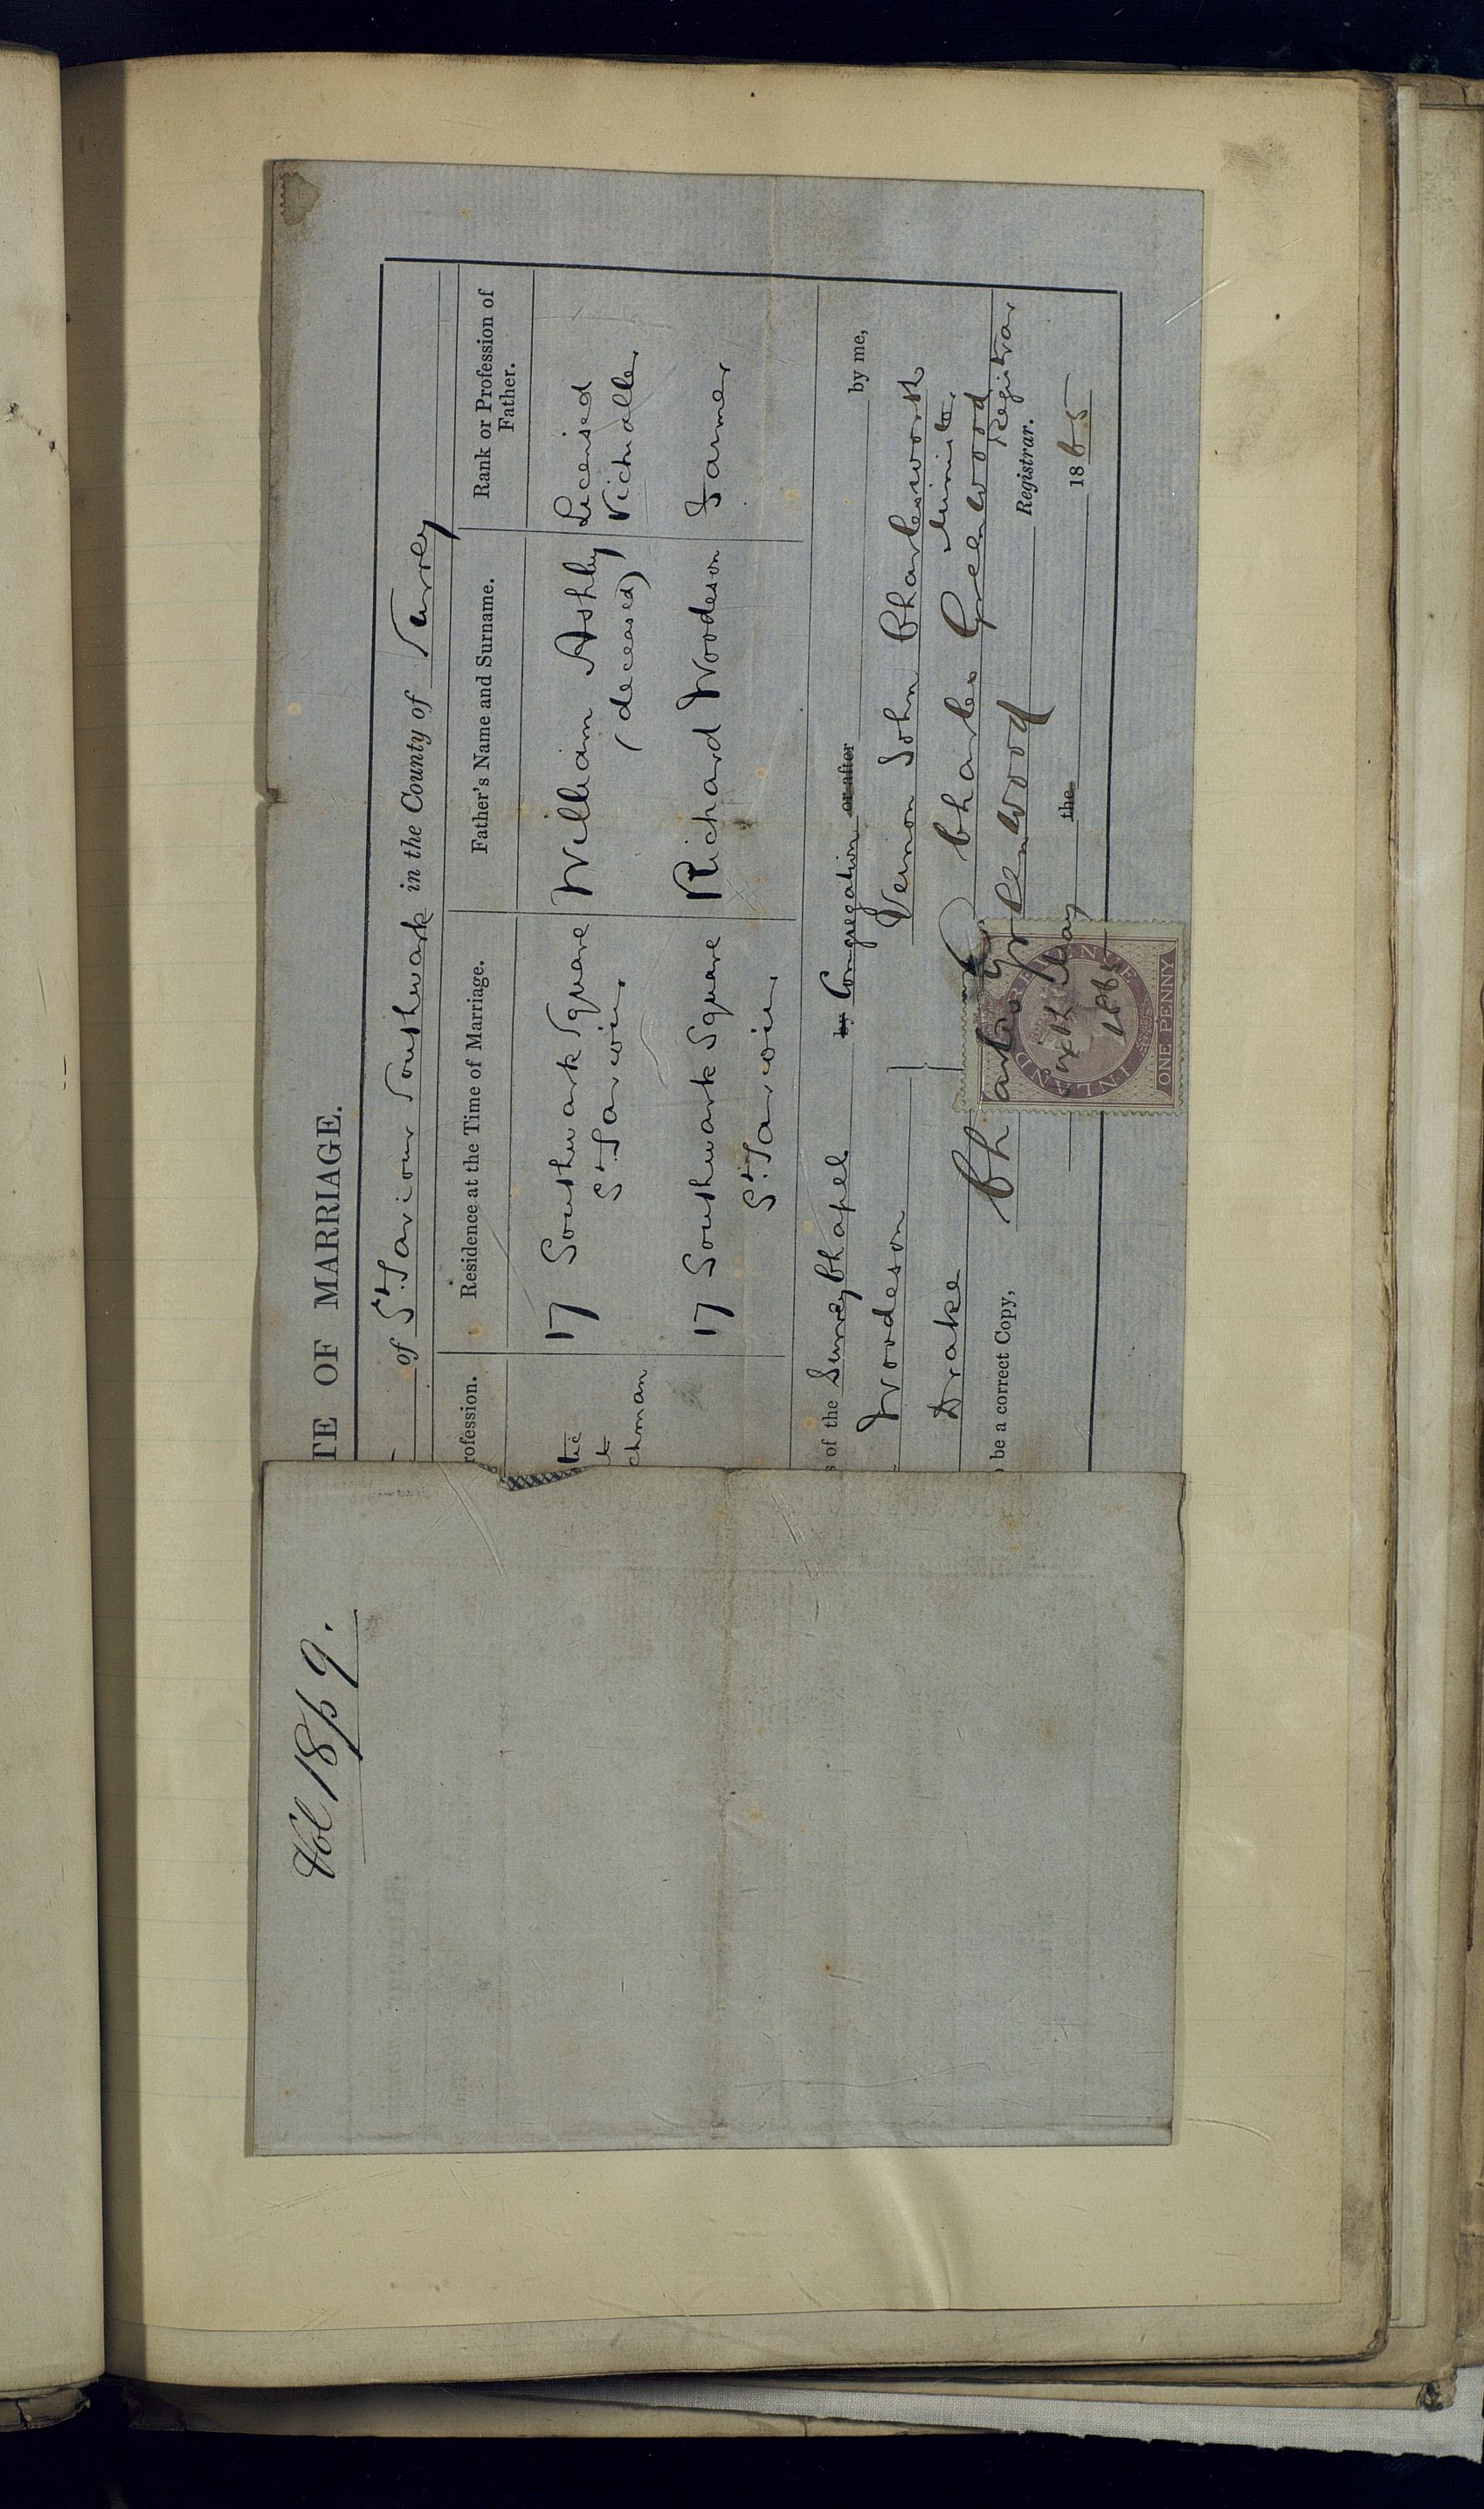 TE OF MARRIAGE.
of St. Saviour Southwark in the County of Surrey
rofession. Residence at the Time of Marriage. Father's Name and Surname. Rank or Profession of Father.
tic 17 Southwark Square William Ashby Licensed
chman St. Saviour (deceased) Victualler
17 Southwark Square Richard Woodeson Farmer
St. Saviour
s of the Surrey Chapel by Congregation or after by me,
Woodeson Vernon John Charlesworth
Minister
Drake Charles Greenwood
Registrar
be a correct Copy, Charles Greenwood Registrar.
Sixth day the 1865
1865
INLAND REVENUE
ONE PENNY
Vol 18 p 9.